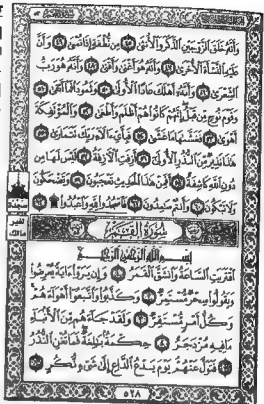 وَأَنَّهُ خَلَقَ الزَّوْجَيْنِ الذَّكَرَ وَالْأُنثَىٰ ٤٥ مِن نُّطْفَةٍ إِذَا تُمْنَىٰ ٤٦ وَأَنَّ
عَلَيْهِ النَّشْأَةَ الْأُخْرَىٰ ٤٧ وَأَنَّهُ هُوَ أَغْنَىٰ وَأَقْنَىٰ ٤٨ وَأَنَّهُ هُوَ رَبُّ
الشِّعْرَىٰ ٤٩ وَأَنَّهُ أَهْلَكَ عَادًا الْأُولَىٰ ٥٠ وَثَمُودَا فَمَا أَبْقَىٰ ٥١
وَقَوْمَ نُوحٍ مِّن قَبْلُ إِنَّهُمْ كَانُوا هُمْ أَظْلَمَ وَأَطْغَىٰ ٥٢ وَالْمُؤْتَفِكَةَ
أَهْوَىٰ ٥٣ فَغَشَّاهَا مَا غَشَّىٰ ٥٤ فَبِأَيِّ آلَاءِ رَبِّكَ تَتَمَارَىٰ ٥٥
هَٰذَا نَذِيرٌ مِّنَ النُّذُرِ الْأُولَىٰ ٥٦ أَزِفَتِ الْآزِفَةُ ٥٧ لَيْسَ لَهَا مِن
دُونِ اللَّهِ كَاشِفَةٌ ٥٨ أَفَمِنْ هَٰذَا الْحَدِيثِ تَعْجَبُونَ ٥٩ وَتَضْحَكُونَ
وَلَا تَبْكُونَ ٦٠ وَأَنتُمْ سَامِدُونَ ٦١ فَاسْجُدُوا لِلَّهِ وَاعْبُدُوا ۩ ٦٢
سجدة
لغير
مالك
سُورَةُ الْقَمَرِ
بِسْمِ اللَّهِ الرَّحْمَٰنِ الرَّحِيمِ
اقْتَرَبَتِ السَّاعَةُ وَانشَقَّ الْقَمَرُ ١ وَإِن يَرَوْا آيَةً يُعْرِضُوا
وَيَقُولُوا سِحْرٌ مُّسْتَمِرٌّ ٢ وَكَذَّبُوا وَاتَّبَعُوا أَهْوَاءَهُمْ
وَكُلُّ أَمْرٍ مُّسْتَقِرٌّ ٣ وَلَقَدْ جَاءَهُم مِّنَ الْأَنبَاءِ
مَا فِيهِ مُزْدَجَرٌ ٤ حِكْمَةٌ بَالِغَةٌ فَمَا تُغْنِ النُّذُرُ
٥ فَتَوَلَّ عَنْهُمْ يَوْمَ يَدْعُ الدَّاعِ إِلَىٰ شَيْءٍ نُّكُرٍ ٦
٥٢٨